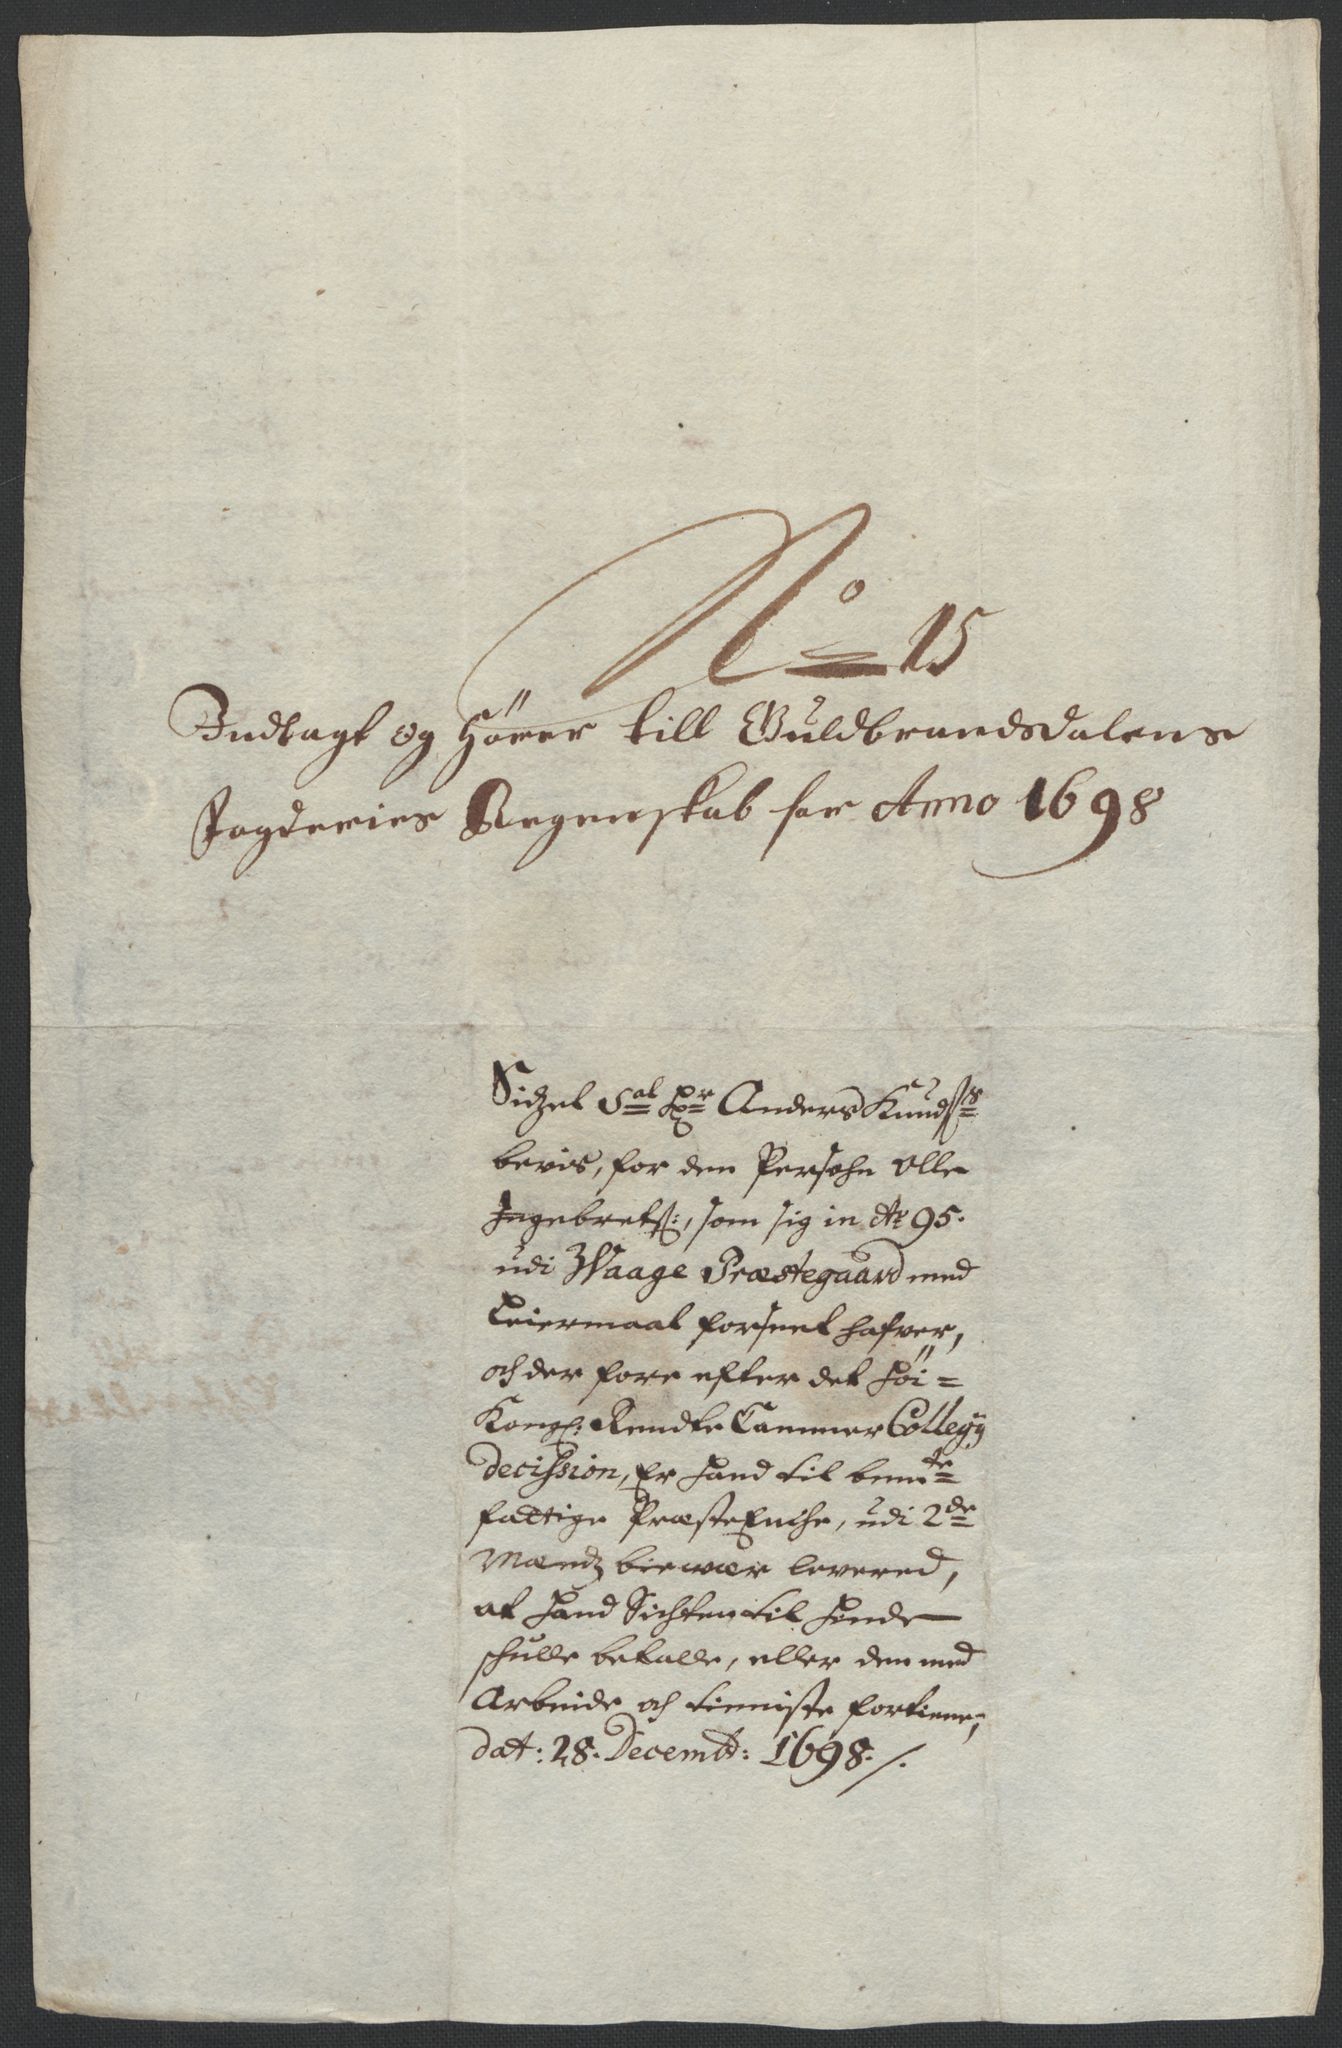 No 15
Indlagt og Hører till Guldbrandsdalens
Fogderies Regenskab for Anno 1698
Sidzel Sal Hr Anders Knuds:
bevis, for den Persohn Olle
Ingebrets:, som sig in Ao 95.
udi Waage Præstegaard med
Leiermaal forseet hafver,
och der fore efter det Høi=
Kongl: Rendte Cammer Collegij
Decission, Er hand til bemte
fattige Præste Enche, udi 2de
Mændz biewær levered,
at hand Sichten til hende
schulle betalle, eller den med
Arbeide och tienniste fortiene,
dat: 28. Decembr: 1698 ./.